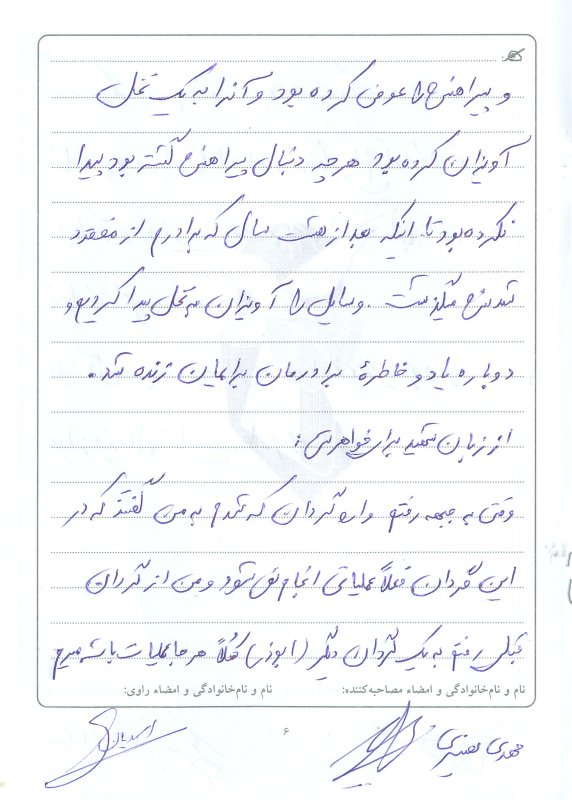 و پیراهنش را عوض کرده بود و آنرا به یک نخل
آویزان کرده بود هر چه دنبال پیراهنش گشته بود پیدا
نکرده بود تا اینکه بعد از هشت سال که برادرم از مفقود
شدنش میگذشت. وسایل را آویزان به نخل پیدا کردیم و
دوباره یاد و خاطرهٔ برادرمان برایمان زنده شد.
از زبان شهید برای خواهرش:
وقتی به جبهه رفتم وارد گردان که شدم به من گفتند که در
این گردان فعلاً عملیاتی انجام نمی شود و من از گردان
قبلی رفتم به یک گردان دیگر (ابوذر) کلاً هر جا عملیات باشه میرم
نام و نام‌خانوادگی و امضاء مصاحبه‌کننده:
نام و نام‌خانوادگی و امضاء راوی:
۶
مهدی